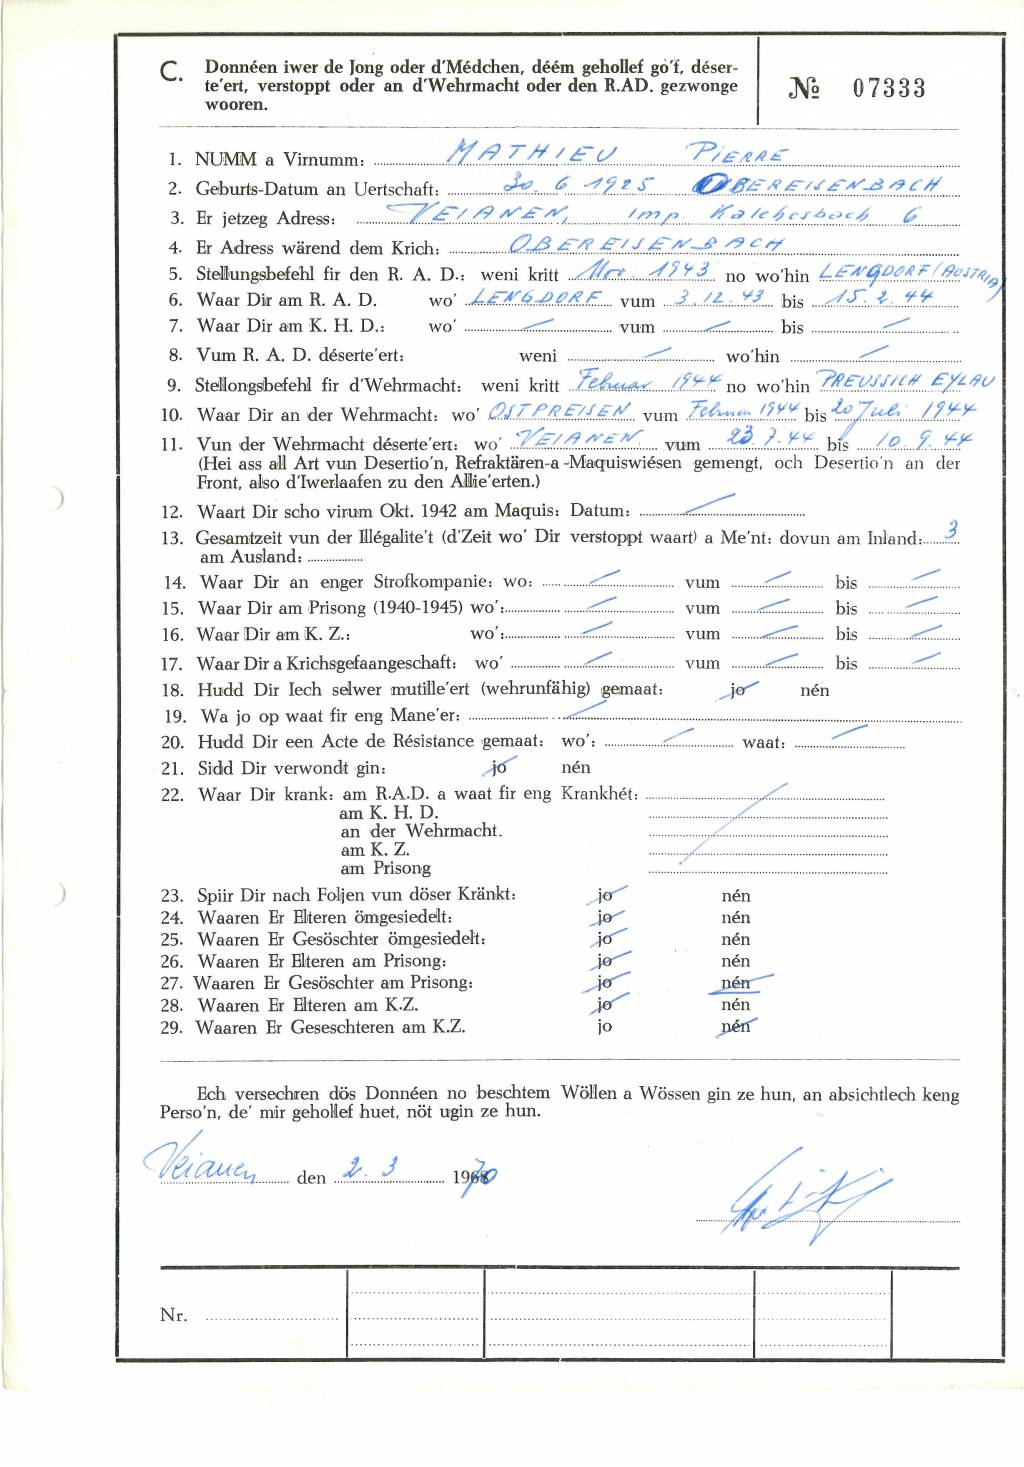 C. Donnéen iwer de Jong oder d'Médchen, déém gehollef go'f, déser-
te'ert, verstoppt oder an d'Wehrmacht oder den R.AD. gezwonge
wooren.
№ 07333
1. NUMM a Virnumm: MATHIEU PIERRE
2. Geburts-Datum an Uertschaft: 30. 6 1925 OBEREISENBACH
3. Er jetzeg Adress: VEIANEN, imp. Kalchesbach 6
4. Er Adress wärend dem Krich: OBEREISENBACH
5. Stellungsbefehl fir den R. A. D.: weni kritt Nov. 1943 no wo'hin LENGDORF (AUSTRIA)
6. Waar Dir am R. A. D. wo' LENGDORF vum 3.12.43 bis 15.2.44
7. Waar Dir am K. H. D.: wo' vum bis
8. Vum R. A. D. déserte'ert: weni wo'hin
9. Stellongsbefehl fir d'Wehrmacht: weni kritt Februar 1944 no wo'hin PREUSSICH EYLAU
10. Waar Dir an der Wehrmacht: wo' OSTPREISEN vum Februar 1944 bis 20 Juli 1944
11. Vun der Wehrmacht déserte'ert: wo' VEIANEN vum 23.7.44 bis 10.9.44
(Hei ass all Art vun Desertio'n, Refraktären-a-Maquiswiésen gemengt, och Desertio'n an der
Front, also d'Iwerlaafen zu den Allie'erten.)
12. Waart Dir scho virum Okt. 1942 am Maquis: Datum:
13. Gesamtzeit vun der Illégalite't (d'Zeit wo' Dir verstoppt waart) a Me'nt: dovun am Inland: 3
am Ausland:
14. Waar Dir an enger Strofkompanie: wo: vum bis
15. Waar Dir am Prisong (1940-1945) wo': vum bis
16. Waar Dir am K. Z.: wo': vum bis
17. Waar Dir a Krichsgefaangeschaft: wo' vum bis
18. Hudd Dir Iech selwer mutille'ert (wehrunfähig) gemaat: jo nén
19. Wa jo op waat fir eng Mane'er:
20. Hudd Dir een Acte de Résistance gemaat: wo': waat:
21. Sidd Dir verwondt gin: jo nén
22. Waar Dir krank: am R.A.D. a waat fir eng Krankhét:
am K. H. D.
an der Wehrmacht.
am K. Z.
am Prisong
23. Spiir Dir nach Foljen vun döser Kränkt: jo nén
24. Waaren Er Elteren ömgesiedelt: jo nén
25. Waaren Er Gesöschter ömgesiedelt: jo nén
26. Waaren Er Elteren am Prisong: jo nén
27. Waaren Er Gesöschter am Prisong: jo nén
28. Waaren Er Elteren am K.Z. jo nén
29. Waaren Er Geseschteren am K.Z. jo nén
Ech versechren dös Donnéen no beschtem Wöllen a Wössen gin ze hun, an absichtlech keng
Perso'n, de' mir gehollef huet, nöt ugin ze hun.
Veianen den 2. 3 1970
Nr.